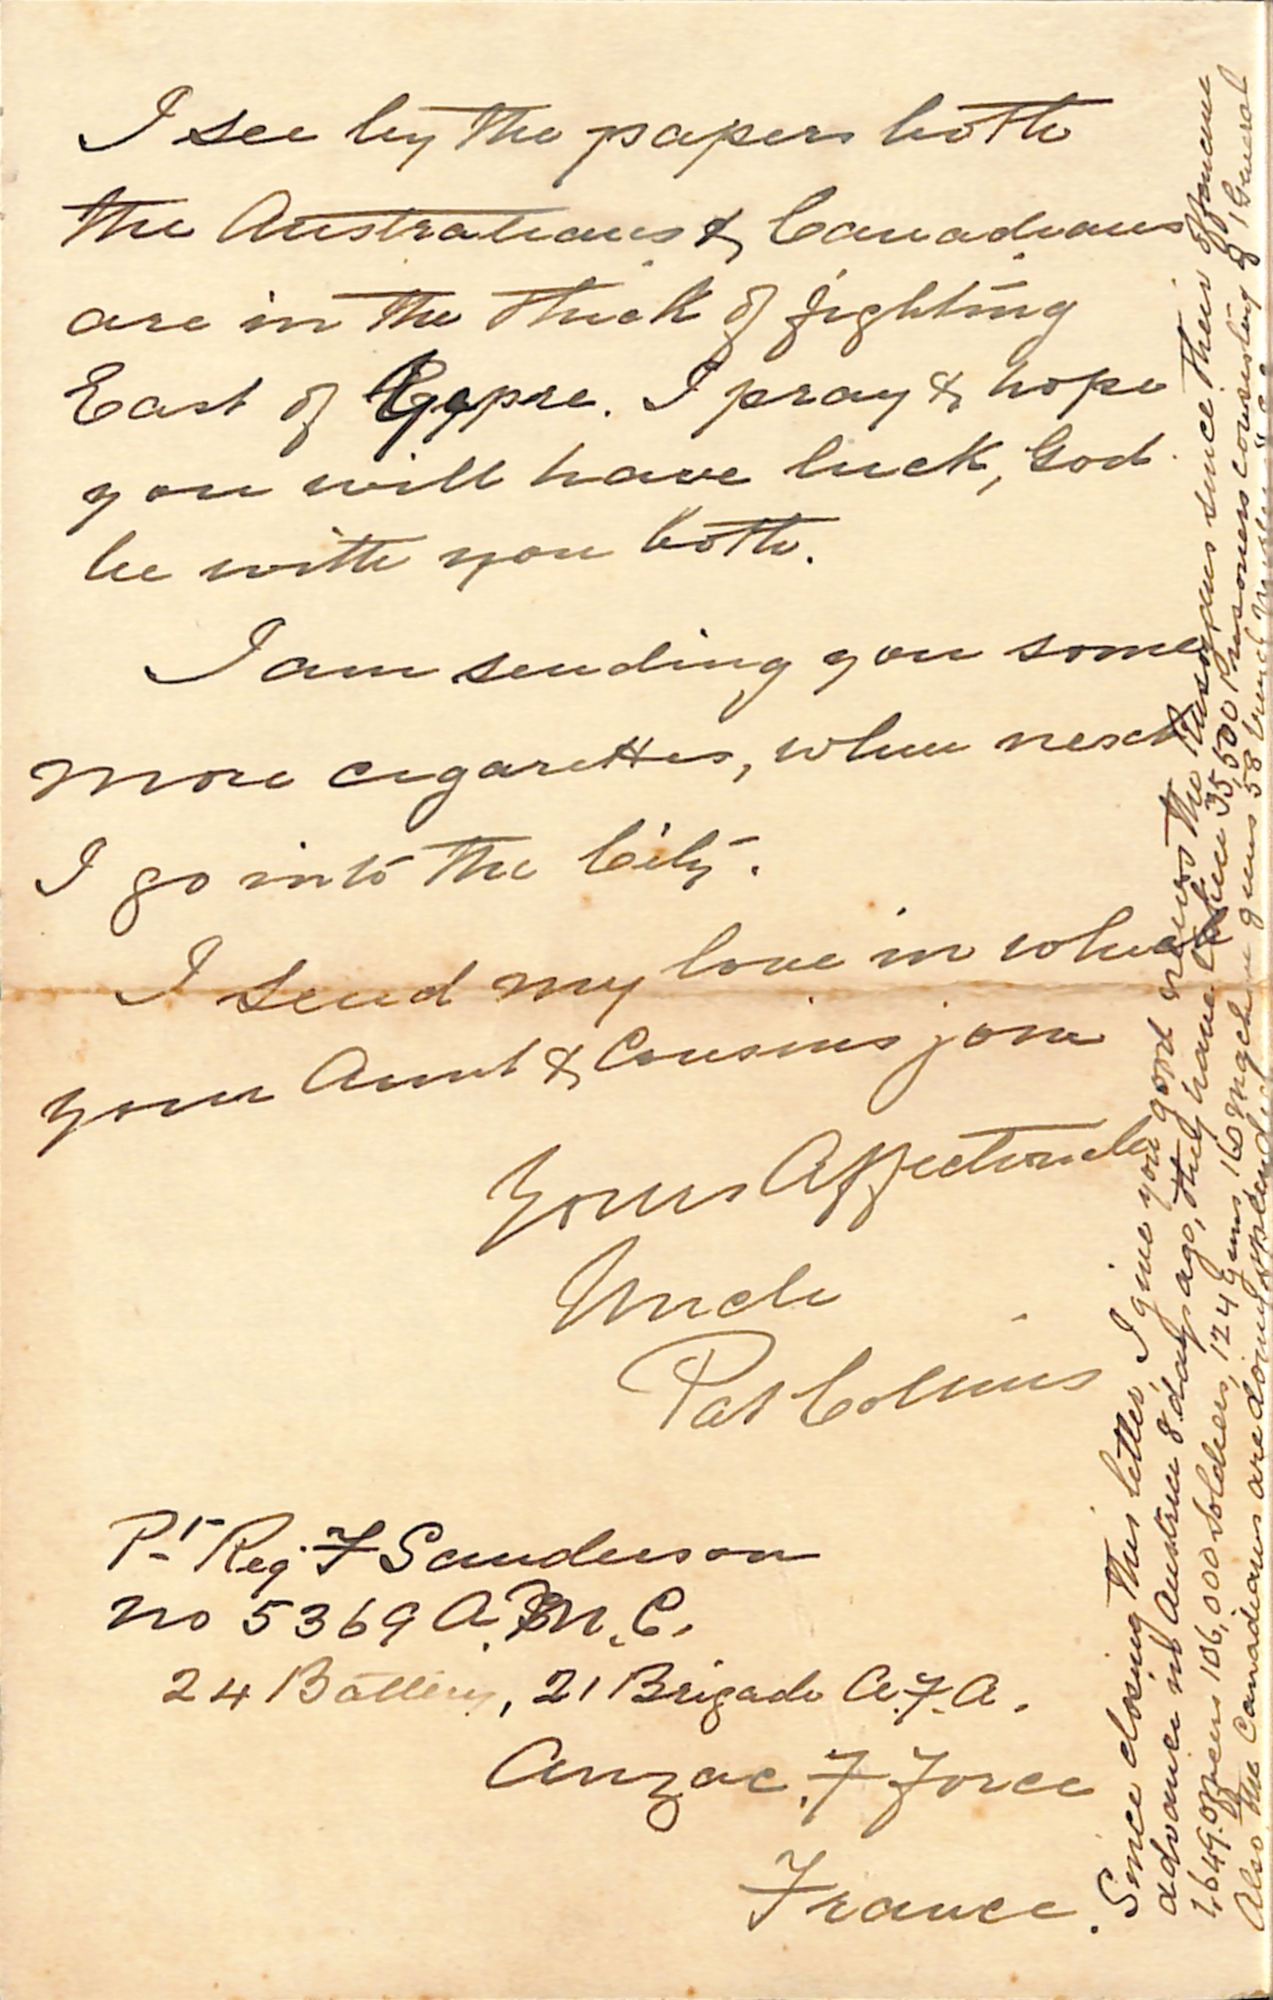 I see by the papers both
the Australians & Canadians
are in the thick of fighting
East of Yypre. I pray & hope
you will have luck, God
be with you both.
I am sending you some
more cigarettes, when next
I go into the City.
I send my love in which
your Aunt & Cousins join
Yours Affectionately
Uncle
Pat Collins
Pt Reg. F Sanderson
No 5369 A. M. C.
24 Battery, 21 Brigade A.F.A.
Anzac. F Force
France.
Since closing this letter, I give you good news the Russians since their offensive
advance in Austria 8 days ago, they have taken prisoners consisting of 1 General
1,649 officers 106,000 soldiers, 124 guns, 160 Machine guns 58 trench
Also the Canadians are doing splendid